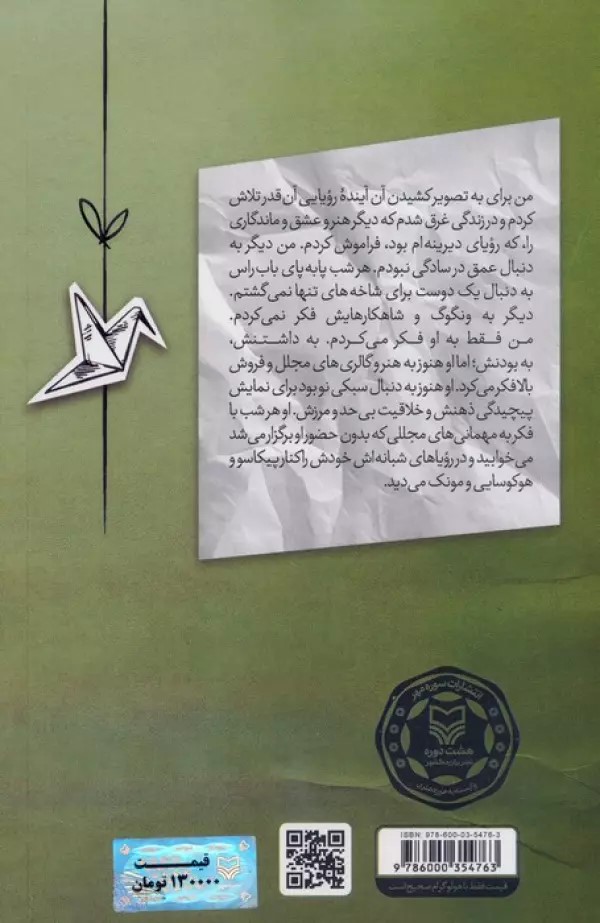 من برای به تصویر کشیدن آن آیندهٔ رؤیایی آن قدر تلاش
کردم و در زندگی غرق شدم که دیگر هنر و عشق و ماندگاری
را، که رؤیای دیرینه ام بود، فراموش کردم. من دیگر به
دنبال عمق در سادگی نبودم. هر شب پا به پای باب راس
به دنبال یک دوست برای شاخه های تنها نمی گشتم.
دیگر به ونگوگ و شاهکارهایش فکر نمی کردم.
من فقط به او فکر می کردم. به داشتنش،
به بودنش؛ اما او هنوز به هنر و گالری های مجلل و فروش
بالا فکر می کرد. او هنوز به دنبال سبکی نو بود برای نمایش
پیچیدگی ذهنش و خلاقیت بی حد و مرزش. او هر شب با
فکر به مهمانی های مجللی که بدون حضور او برگزار می شد
می خوابید و در رؤیاهای شبانه اش خودش را کنار پیکاسو و
هوکوسایی و مونک می دید.
انتشارات سوره مهر
هشت دوره
ناشر برگزیده کشور
ISBN: 978-600-03-5476-3
9 786000 354763
قیمت فقط با هولوگرام صحیح است
قیمت
۱۳۰۰۰۰ تومان